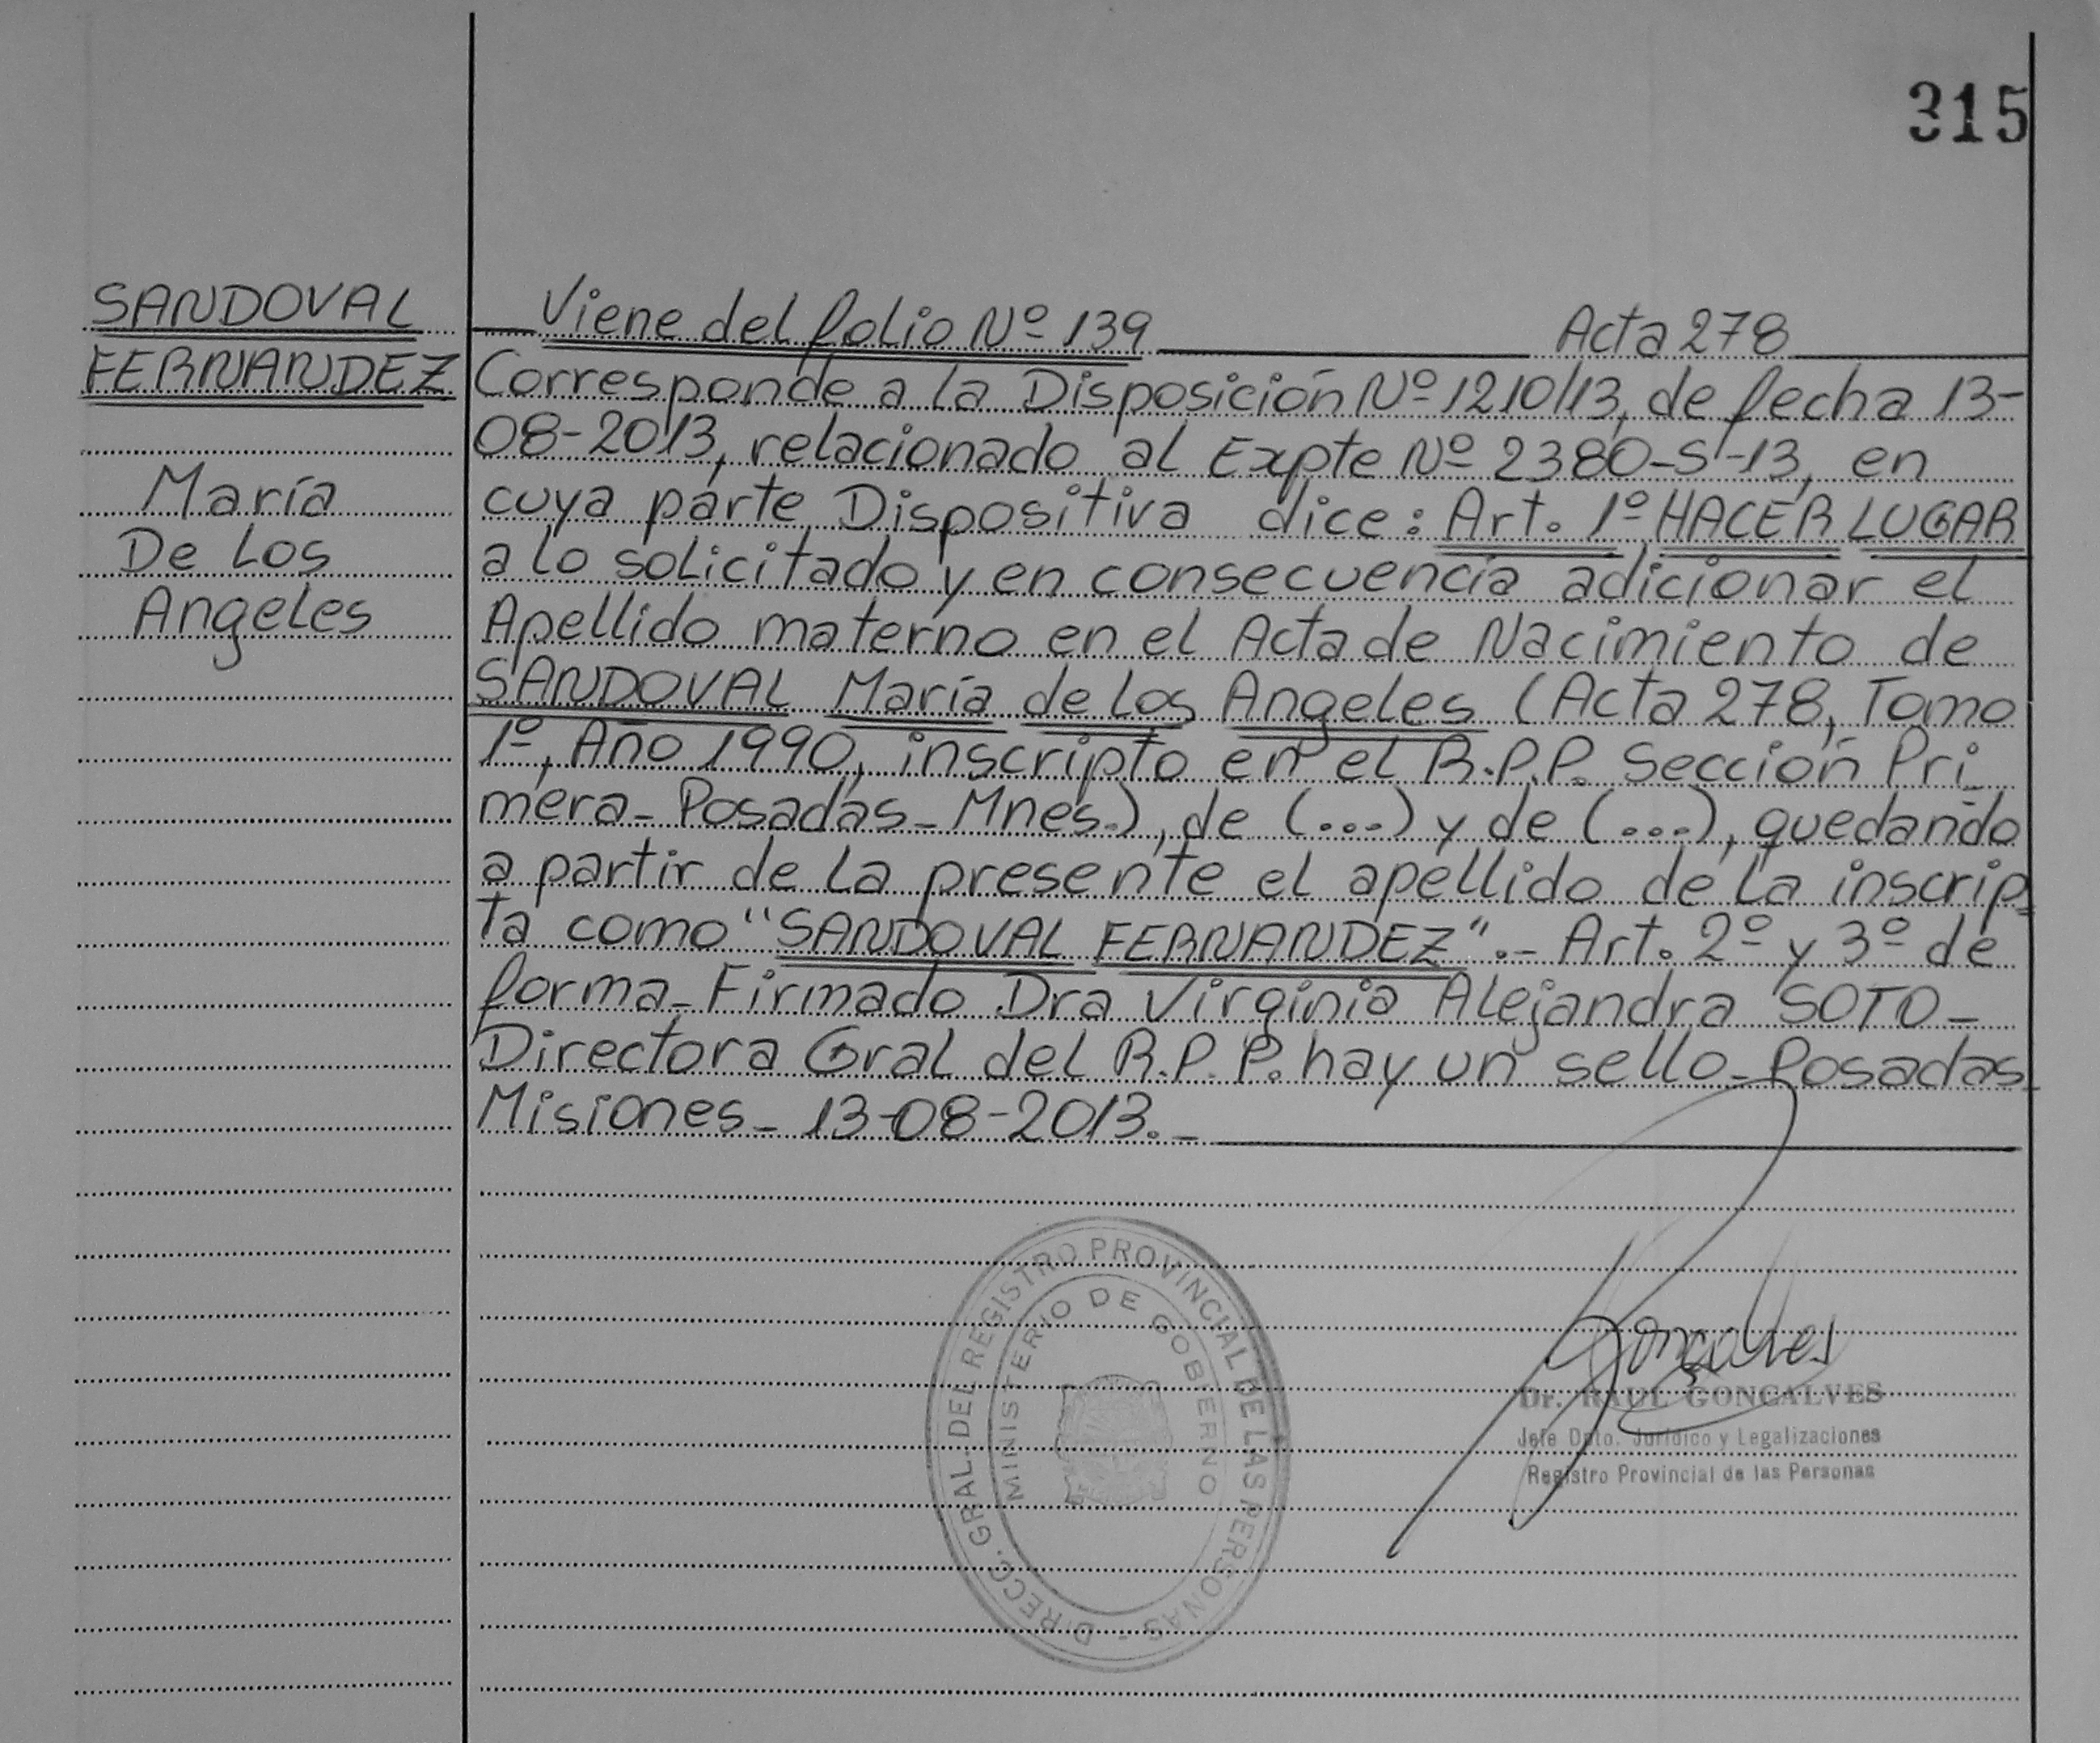 315
SANDOVAL
FERNANDEZ
María
De Los
Angeles
Viene del folio Nº 139 Acta 278
Corresponde a la Disposición Nº 1210/13, de fecha 13-
08-2013, relacionado al Expte Nº 2380-S-13, en
cuya parte Dispositiva dice: Art. 1º HACER LUGAR
a lo solicitado y en consecuencia adicionar el
Apellido materno en el Acta de Nacimiento de
SANDOVAL María de los Angeles (Acta 278, Tomo
1º, Año 1990, inscripto en el R.P.P. Sección Pri_
mera_ Posadas_ Mnes.), de (...) y de (...), quedando
a partir de la presente el apellido de la inscrip_
ta como "SANDOVAL FERNANDEZ".- Art. 2º y 3º de
forma_ Firmado Dra Virginia Alejandra SOTO_
Directora Gral del R.P.P. hay un sello_ Posadas_
Misiones_ 13-08-2013._
DIRECC. GRAL. DEL REGISTRO PROVINCIAL DE LAS PERSONAS -
MINISTERIO DE GOBIERNO
Goncalves
Dr. RAUL GONCALVES
Jefe Dpto. Jurídico y Legalizaciones
Registro Provincial de las Personas